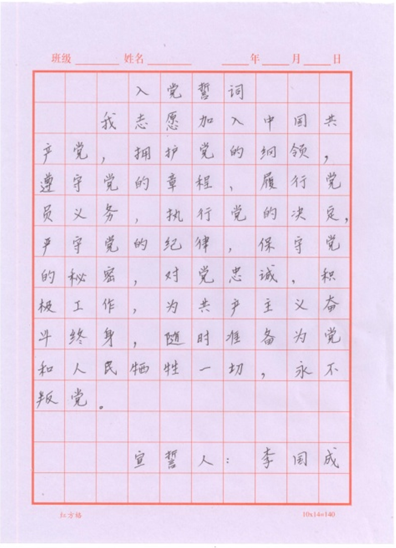 班级 姓名 年 月 日
入党誓词
我志愿加入中国共
产党，拥护党的纲领，
遵守党的章程，履行党
员义务，执行党的决定，
严守党的纪律，保守党
的秘密，对党忠诚，积
极工作，为共产主义奋
斗终身，随时准备为党
和人民牺牲一切，永不
叛党。
宣誓人：李国成
10x14=140